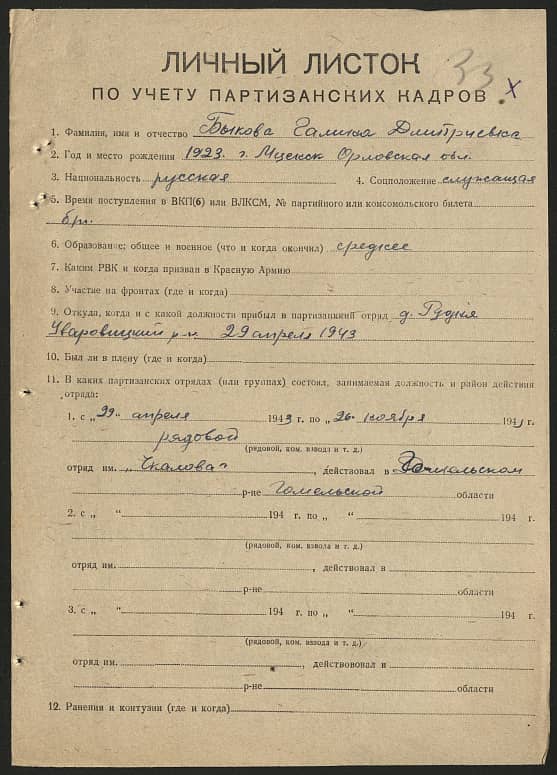 33 X
ЛИЧНЫЙ ЛИСТОК
ПО УЧЕТУ ПАРТИЗАНСКИХ КАДРОВ
1. Фамилия, имя и отчество Быкова Галина Дмитриевна
2. Год и место рождения 1923 г. Мценск Орловская обл.
3. Национальность русская 4. Соцположение служащая
5. Время поступления в ВКП(б) или ВЛКСМ, № партийного или комсомольского билета
б/п.
6. Образование: общее и военное (что и когда окончил) среднее
7. Каким РВК и когда призван в Красную Армию
8. Участие на фронтах (где и когда)
9. Откуда, когда и с какой должности прибыл в партизанский отряд д. Рудня
Уваровицкий р-н 29 апреля 1943
10. Был ли в плену (где и когда)
11. В каких партизанских отрядах (или группах) состоял, занимаемая должность и район действия
отряда:
1. с „29" апреля 1943 г. по „26" ноября 194 г.
рядовой
(рядовой, ком. взвода и т. д.)
отряд им. „Чкалова" , действовал в
р-не Гомельской области
2. с „ " 194 г. по „ " 194 г.
(рядовой, ком. взвола и т. д.)
отряд им. , действовал в
р-не области
3. с „ " 194 г. по „ " 194 г.
(рядовой, ком. взвода и т. д.)
отряд им. , действововал в
р-не области
12. Ранения и контузии (где и когда)